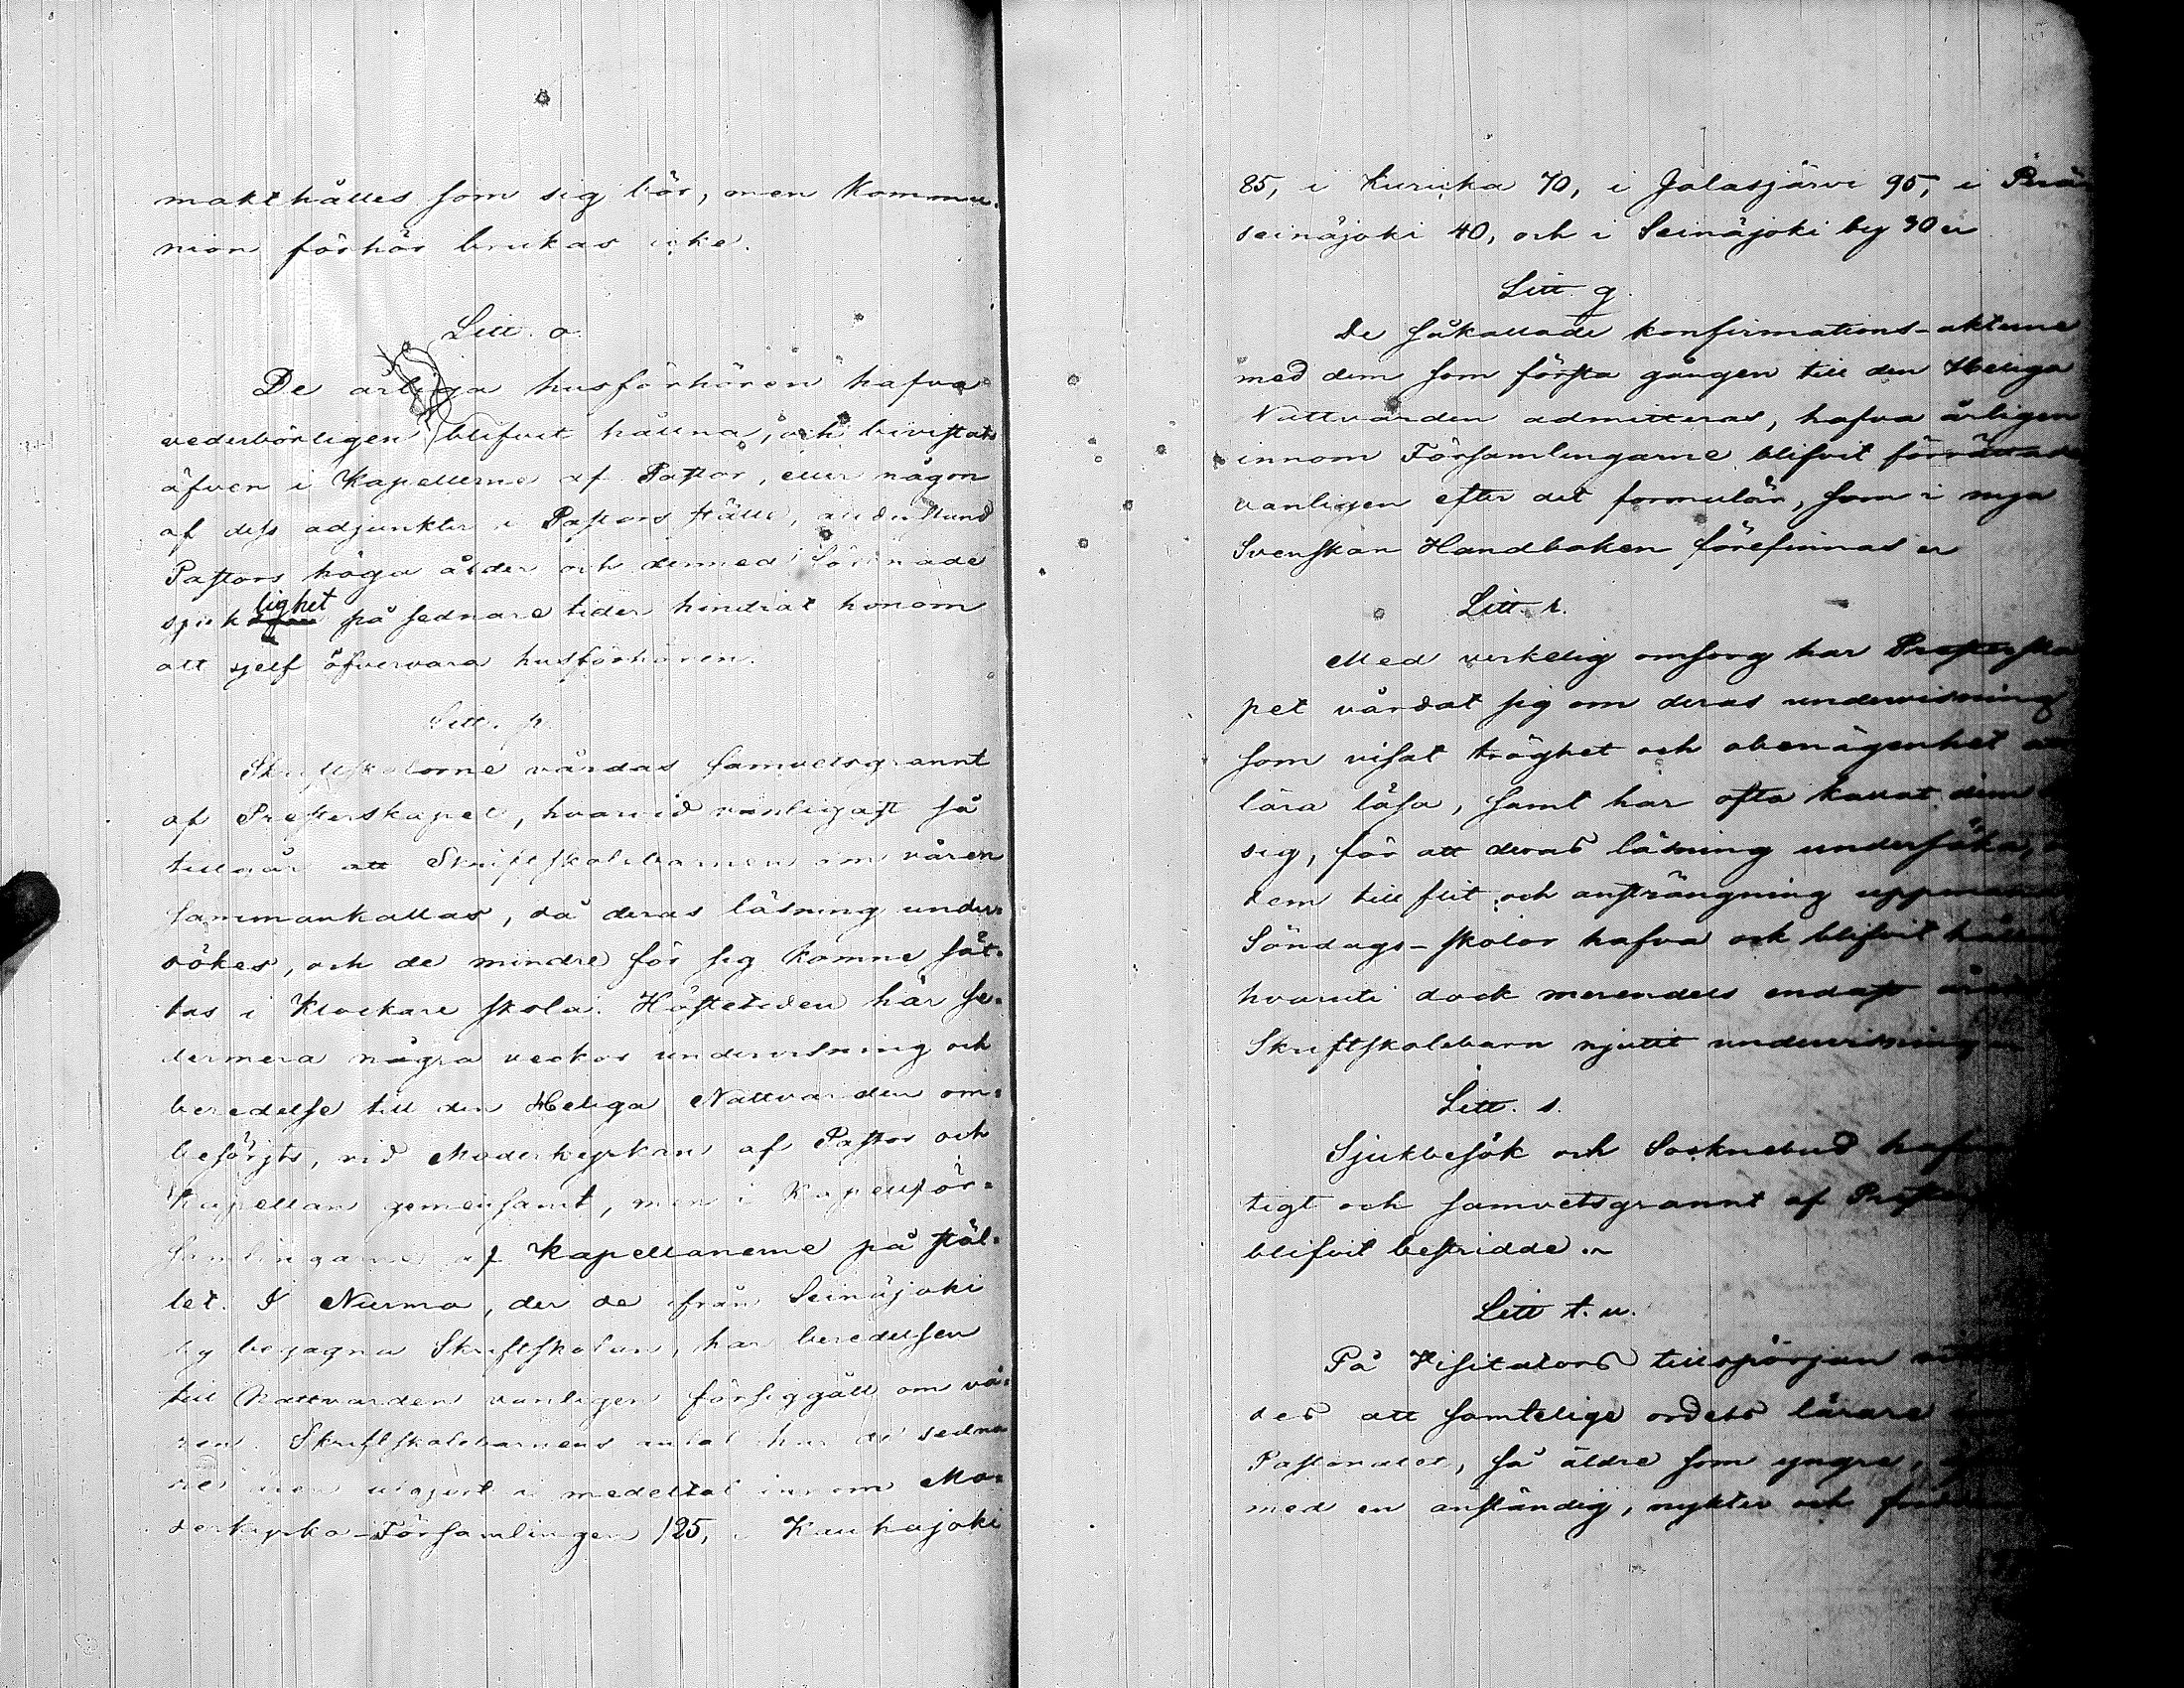 makthålles som sig bör, men Kommu-
nion förhör brukas icke.
Litt. o.
De årliga husförhören hafva
vederbörligen blifvit hållna, och bivistats
äfven i Kapellerne af Pastor, eller någon
af dess adjunkter i Pastors ställe,
Pastors höga ålder och dermed förenade
sjuklighet på sednare tider hindrat honom
att sjelf öfvervara husförhören.
Litt. p.
Skriftskolorne vårdas samvetsgrannt
af Presterskapet, hvarvid vanligast så
tillgår att Skriftskolebarnen om våren
sammankallas, då deras läsning under-
sökes, och de mindre för sig komne sät-
tas i Klockare skola. Hösttiden här se-
dermera några veckor undervisning och
beredelse till den Heliga Nattvarden om-
besörjts, vid Moderkyrkan af Pastor och
Kapellan gemensamt, men i Kapellför-
samlingarne af Kapellanerne på stäl-
let. I Nurmo, der de ifrån Seinäjoki
by begagna Skriftskolan, har beredelsen
till Nattvarden vanligen försiggått om vå-
ren. Skriftskolebarnens antal har de sedna-
re åren utgjort i medeltal innom Mo-
derkyrko-Församlingen 125, i Kauhajoki
85, i Kurikka 70, i Jalasjärvi 95, i Perä-
seinäjoki 40, och i Seinäjoki by 30
Litt. q.
De såkallade konfirmations-akterne
med dem som första gången till den Heliga
Nattvarden admitteras, hafva årligen
innom Församlingarne blifvit förrättade
vanligen efter det formulär, som i nya
Svenskan Handboken förefinnas
Litt. r.
Med verkelig omsorg har Presterska
pet vårdat sig om deras undervisning
som visat tröghet och obenägenhet att
lära läsa, samt har ofta kallat dem
sig, för att deras läsning undersöka,
dem till flit och ansträngning uppmana
Söndags-skolor hafva ock blifvit hållna
hvaruti dock merendels endast
Skriftskolebarn njutit undervisning
Litt. s.
Sjukbesök och Socknebud hafva
tigt och samvetsgrannt af Prester
blifvit bestridde.
Litt t. u.
På Visitators tillspörjan
des att samtelige ordets lärare
Pastoratet, så äldre som yngre,
med en anständig, nykter och